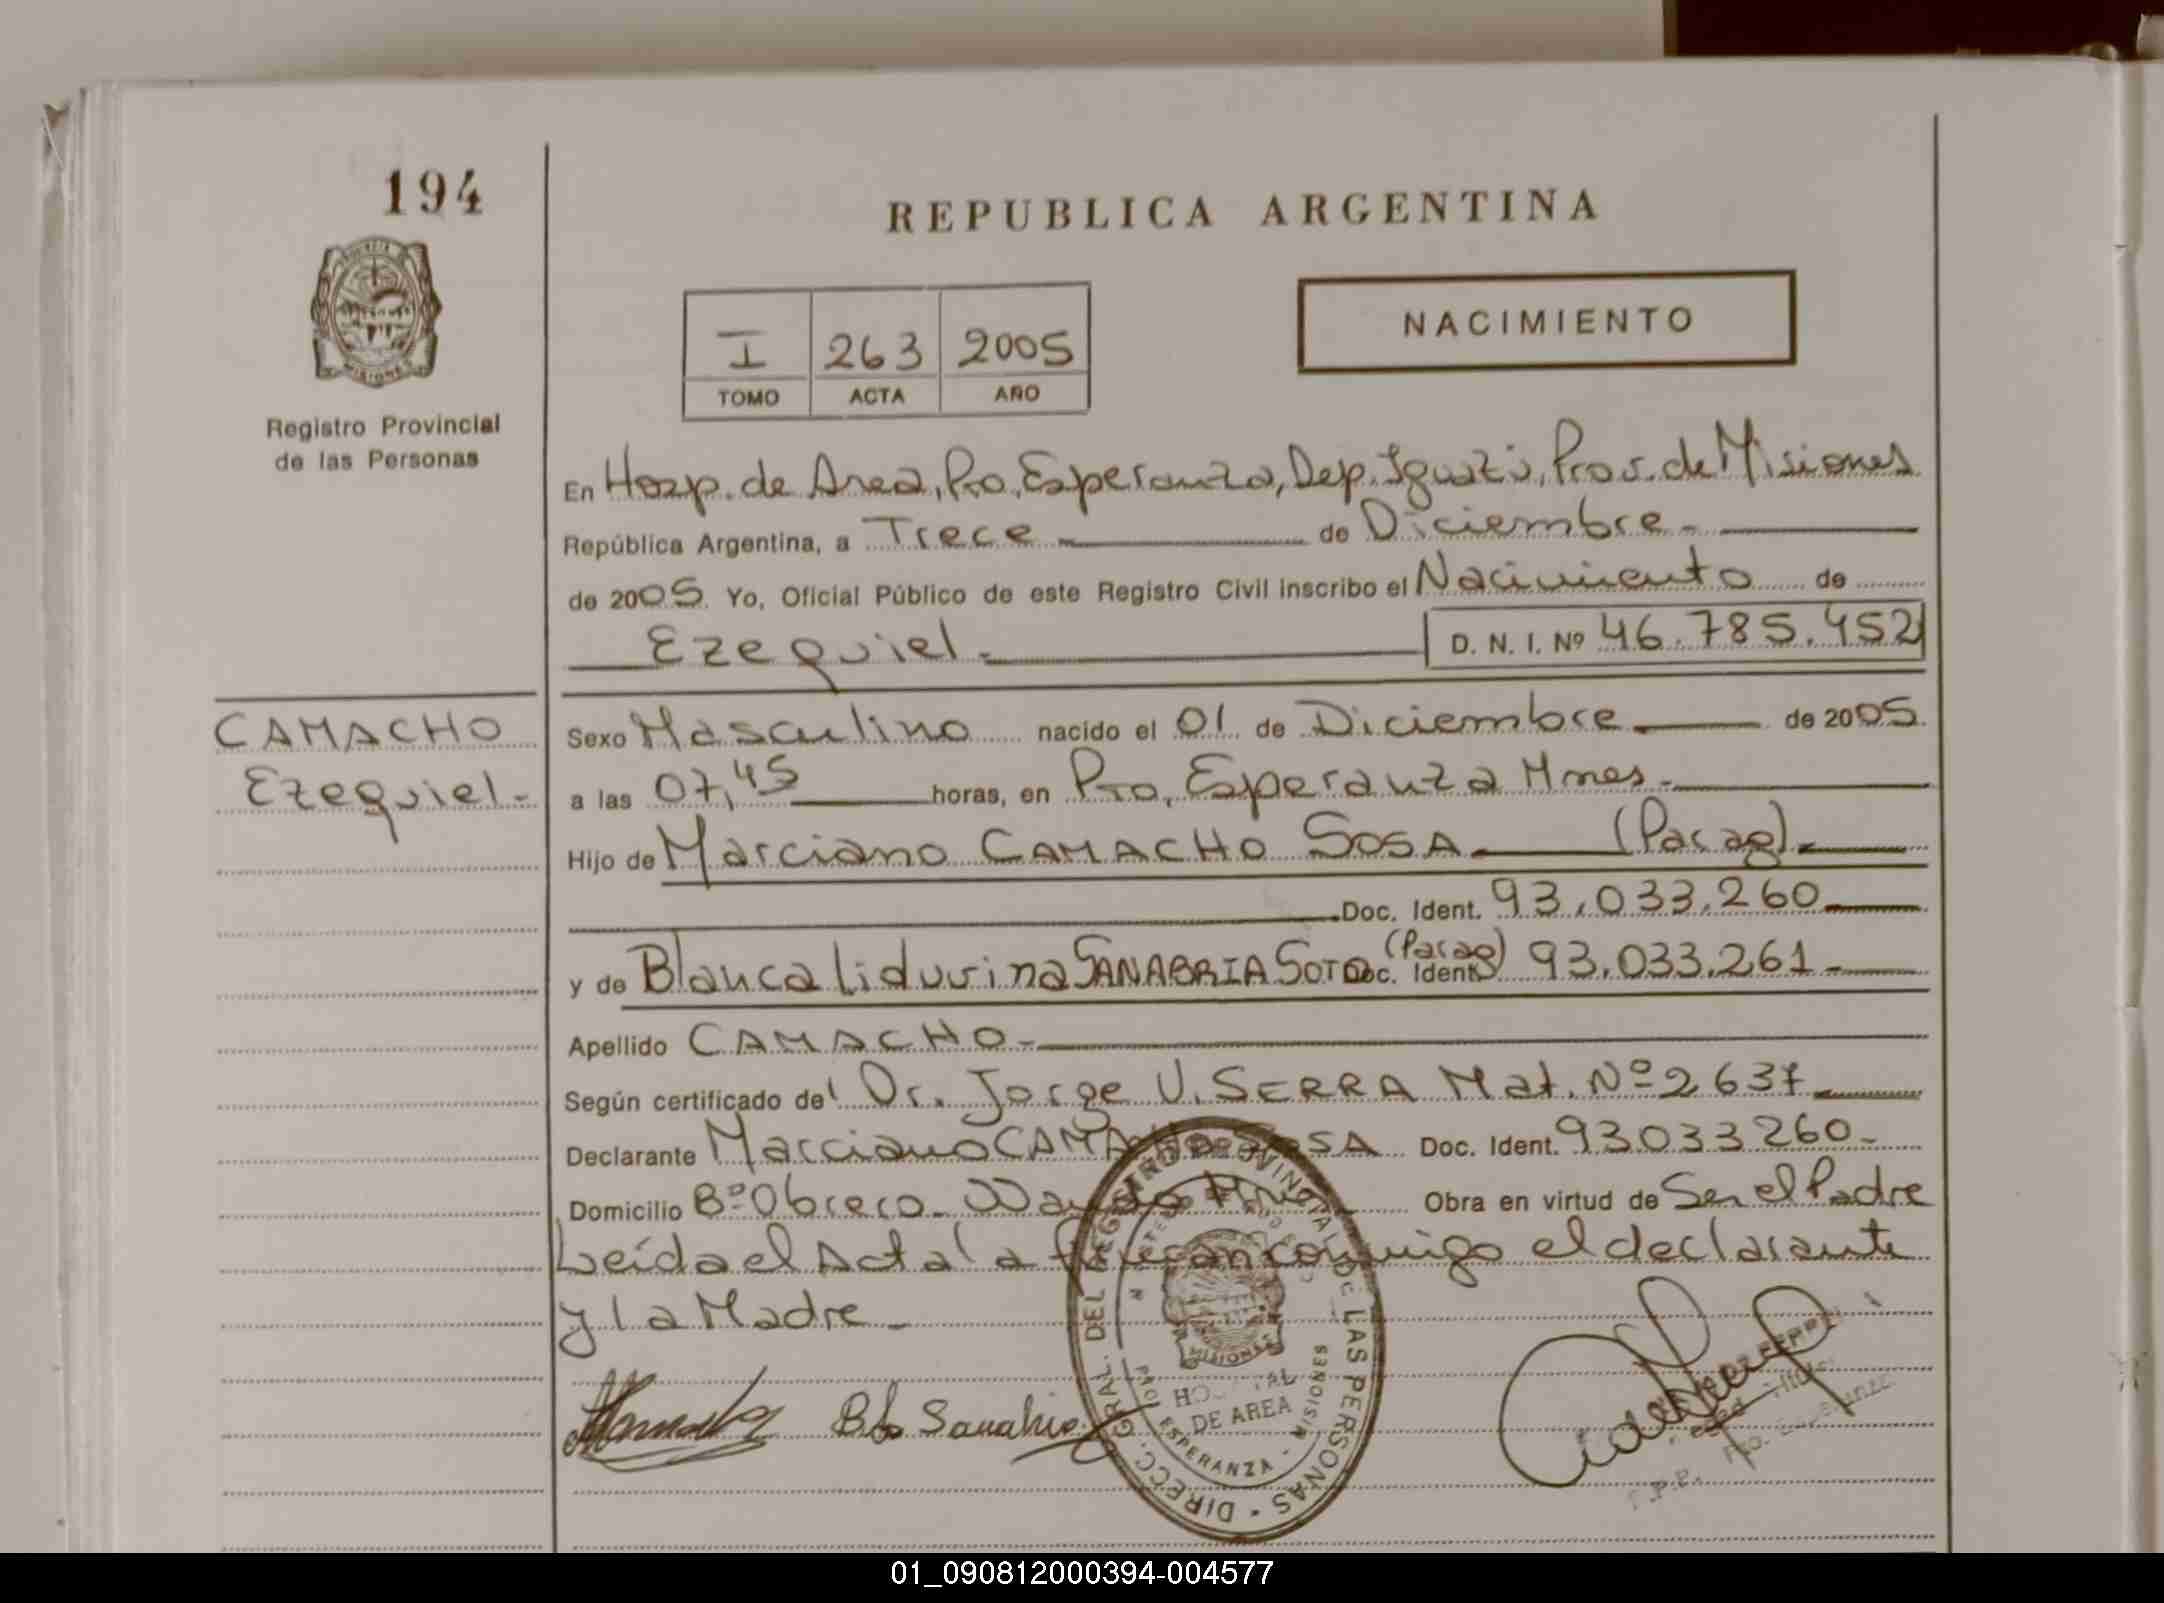 194
REPUBLICA ARGENTINA
I 263 2005
TOMO ACTA AÑO
NACIMIENTO
MISIONES
Registro Provincial
de las Personas
En Hosp. de Area, Pto. Esperanza, Dep. Iguazú, Prov. de Misiones
República Argentina, a Trece de Diciembre.
de 2005. Yo, Oficial Público de este Registro Civil inscribo el Nacimiento de
Ezequiel. D. N. I. Nº 46.785.452
CAMACHO
Ezequiel.
Sexo Masculino nacido el 01 de Diciembre de 2005.
a las 07,45 horas, en Pto. Esperanza Mnes.
Hijo de Marciano CAMACHO SOSA (Parag).
Doc. Ident. 93.033.260
y de Blanca Liduvina SANABRIA SOTO (Parag) Doc. Ident. 93.033.261.
Apellido CAMACHO.
Según certificado del Dr. Jorge V. SERRA Mat. Nº 2637
Declarante Marciano CAMACHO SOSA Doc. Ident. 93033260.
Domicilio Bº Obrero. Wanda Mnes Obra en virtud de Ser el Padre
Leída el Acta la firman conmigo el declarante
y la Madre.
Bla Sanabria
DIRECC. GRAL. DEL REGISTRO PROVINCIAL DE LAS PERSONAS
MISIONES
HOSPITAL
DE AREA
ESPERANZA - MISIONES
01_090812000394-004577